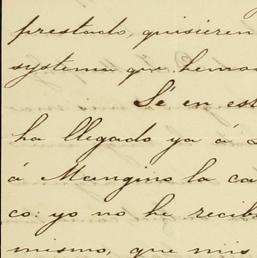 prestado, quisieren
systema que hemo
Sé en est
ha llegado ya á
á Mangino la ca
co: yo no he recib
mismo, que mis